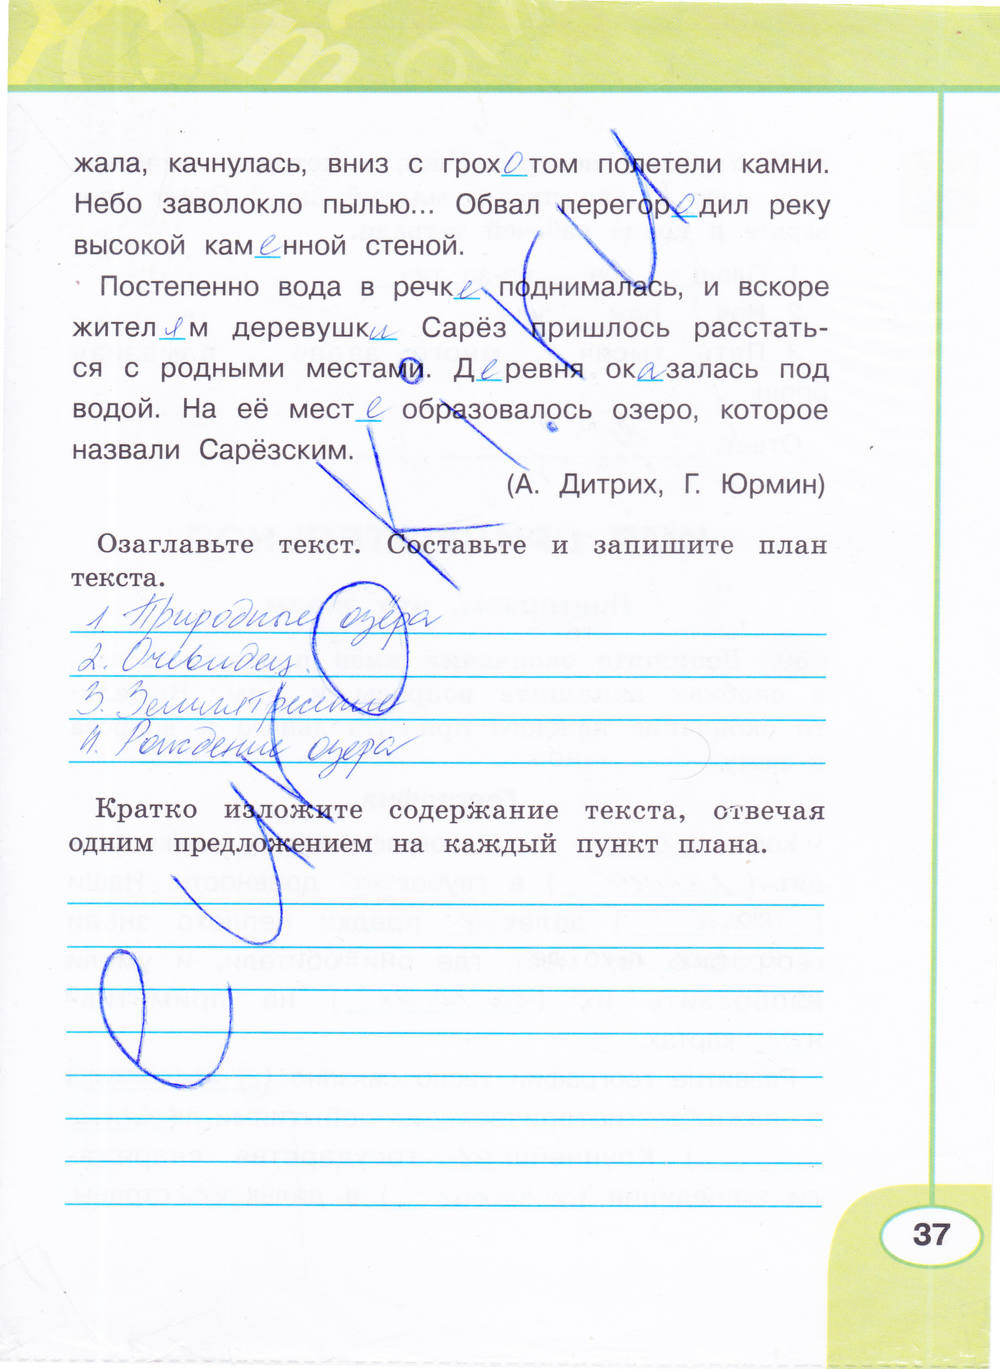 жала, качнулась, вниз с грохотом полетели камни.
Небо заволокло пылью... Обвал перегородил реку
высокой каменной стеной.
Постепенно вода в речке поднималась, и вскоре
жителям деревушки Сарёз пришлось расстать-
ся с родными местами. Деревня оказалась под
водой. На её месте образовалось озеро, которое
назвали Сарёзским.
(А. Дитрих, Г. Юрмин)
Озаглавьте текст. Составьте и запишите план
текста.
1. Природные озёра
2. Очевидец.
3. Землятресение
4. Рождение озера
Кратко изложите содержание текста, отвечая
одним предложением на каждый пункт плана.
37